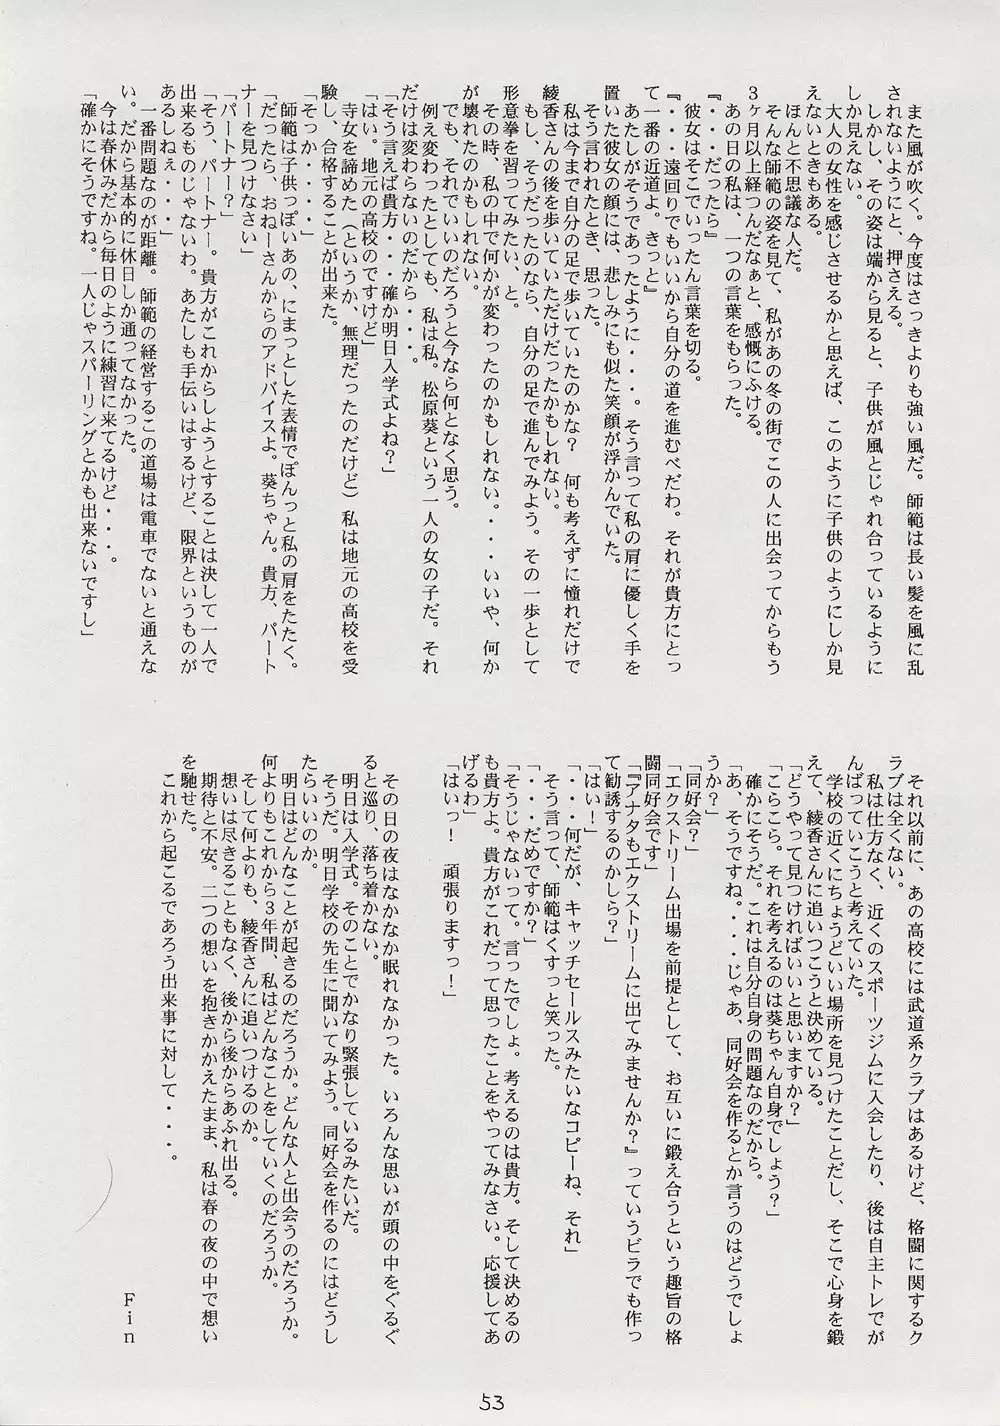 また風が吹く。今度はさっきよりも強い風だ。師範は長い髪を風に乱
されないようにと、押さえる。
しかし、その姿は端から見ると、子供が風とじゃれ合っているように
しか見えない。
大人の女性を感じさせるかと思えば、このように子供のようにしか見
えないときもある。
ほんと不思議な人だ。
そんな師範の姿を見て、私があの冬の街でこの人に出会ってからもう
３ヶ月以上経つんだなぁと、感慨にふける。
あの日の私は、一つの言葉をもらった。
『・・・だったら』
彼女はそこでいったん言葉を切る。
『・・・遠回りでもいいから自分の道を進むべだわ。それが貴方にとっ
て一番の近道よ。きっと』
あたしがそうであったように・・・。そう言って私の肩に優しく手を
置いた彼女の顔には、悲しみにも似た笑顔が浮かんでいた。
そう言われたとき、思った。
私は今まで自分の足で歩いていたのかな？　何も考えずに憧れだけで
綾香さんの後を歩いていただけだったかもしれない。
もし、そうだったのなら、自分の足で進んでみよう。その一歩として
形意拳を習ってみたい、と。
その時、私の中で何かが変わったのかもしれない。・・・いいや、何か
が壊れたのかもしれない。
でも、それでいいのだろうと今なら何となく思う。
例え変わったとしても、私は私。松原葵という一人の女の子だ。それ
だけは変わらないのだから・・・。
「そう言えば貴方・・・確か明日入学式よね？」
「はい。地元の高校のですけど」
寺女を諦めた（というか、無理だったのだけど）私は地元の高校を受
験し、合格することが出来た。
「そっか・・・」
師範は子供っぽいあの、にまっとした表情でぽんっと私の肩をたたく。
「だったら、おねーさんからのアドバイスよ。葵ちゃん。貴方、パート
ナーを見つけなさい」
「パートナー？」
「そう、パートナー。貴方がこれからしようとすることは決して一人で
出来るものじゃないわ。あたしも手伝いはするけど、限界というものが
あるしねぇ・・・」
一番問題なのが距離。師範の経営するこの道場は電車でないと通えな
い。だから基本的に休日しか通ってなかった。
今は春休みだから毎日のように練習に来てるけど・・・。
「確かにそうですね。一人じゃスパーリングとかも出来ないですし」
それ以前に、あの高校には武道系クラブはあるけど、格闘に関するク
ラブは全くない。
私は仕方なく、近くのスポーツジムに入会したり、後は自主トレでが
んばっていこうと考えていた。
学校の近くにちょうどいい場所を見つけたことだし、そこで心身を鍛
えて、綾香さんに追いつこうと決めている。
「どうやって見つければいいと思いますか？」
「こらこら。それを考えるのは葵ちゃん自身でしょう？」
確かにそうだ。これは自分自身の問題なのだから。
「あ、そうですね。・・・じゃあ、同好会を作るとか言うのはどうでしょ
うか？」
「同好会？」
「エクストリーム出場を前提として、お互いに鍛え合うという趣旨の格
闘同好会です」
「『アナタもエクストリームに出てみませんか？』っていうビラでも作っ
て勧誘するのかしら？」
「はい！」
「・・・何だが、キャッチセールスみたいなコピーね、それ」
そう言って、師範はくすっと笑った。
「・・・だめですか？」
「そうじゃないって。言ったでしょ。考えるのは貴方。そして決めるの
も貴方よ。貴方がこれだって思ったことをやってみなさい。応援してあ
げるわ」
「はいっ！　頑張りますっ！」
その日の夜はなかなか眠れなかった。いろんな思いが頭の中をぐるぐ
ると巡り、落ち着かない。
明日は入学式。そのことでかなり緊張しているみたいだ。
そうだ。明日学校の先生に聞いてみよう。同好会を作るのにはどうし
たらいいのか。
明日はどんなことが起きるのだろうか。どんな人と出会うのだろうか。
何よりもこれから３年間、私はどんなことをしていくのだろうか。
そして何よりも、綾香さんに追いつけるのか。
想いは尽きることもなく、後から後からあふれ出る。
期待と不安。二つの想いを抱きかかえたまま、私は春の夜の中で想い
を馳せた。
これから起こるであろう出来事に対して・・・。
Fin
53